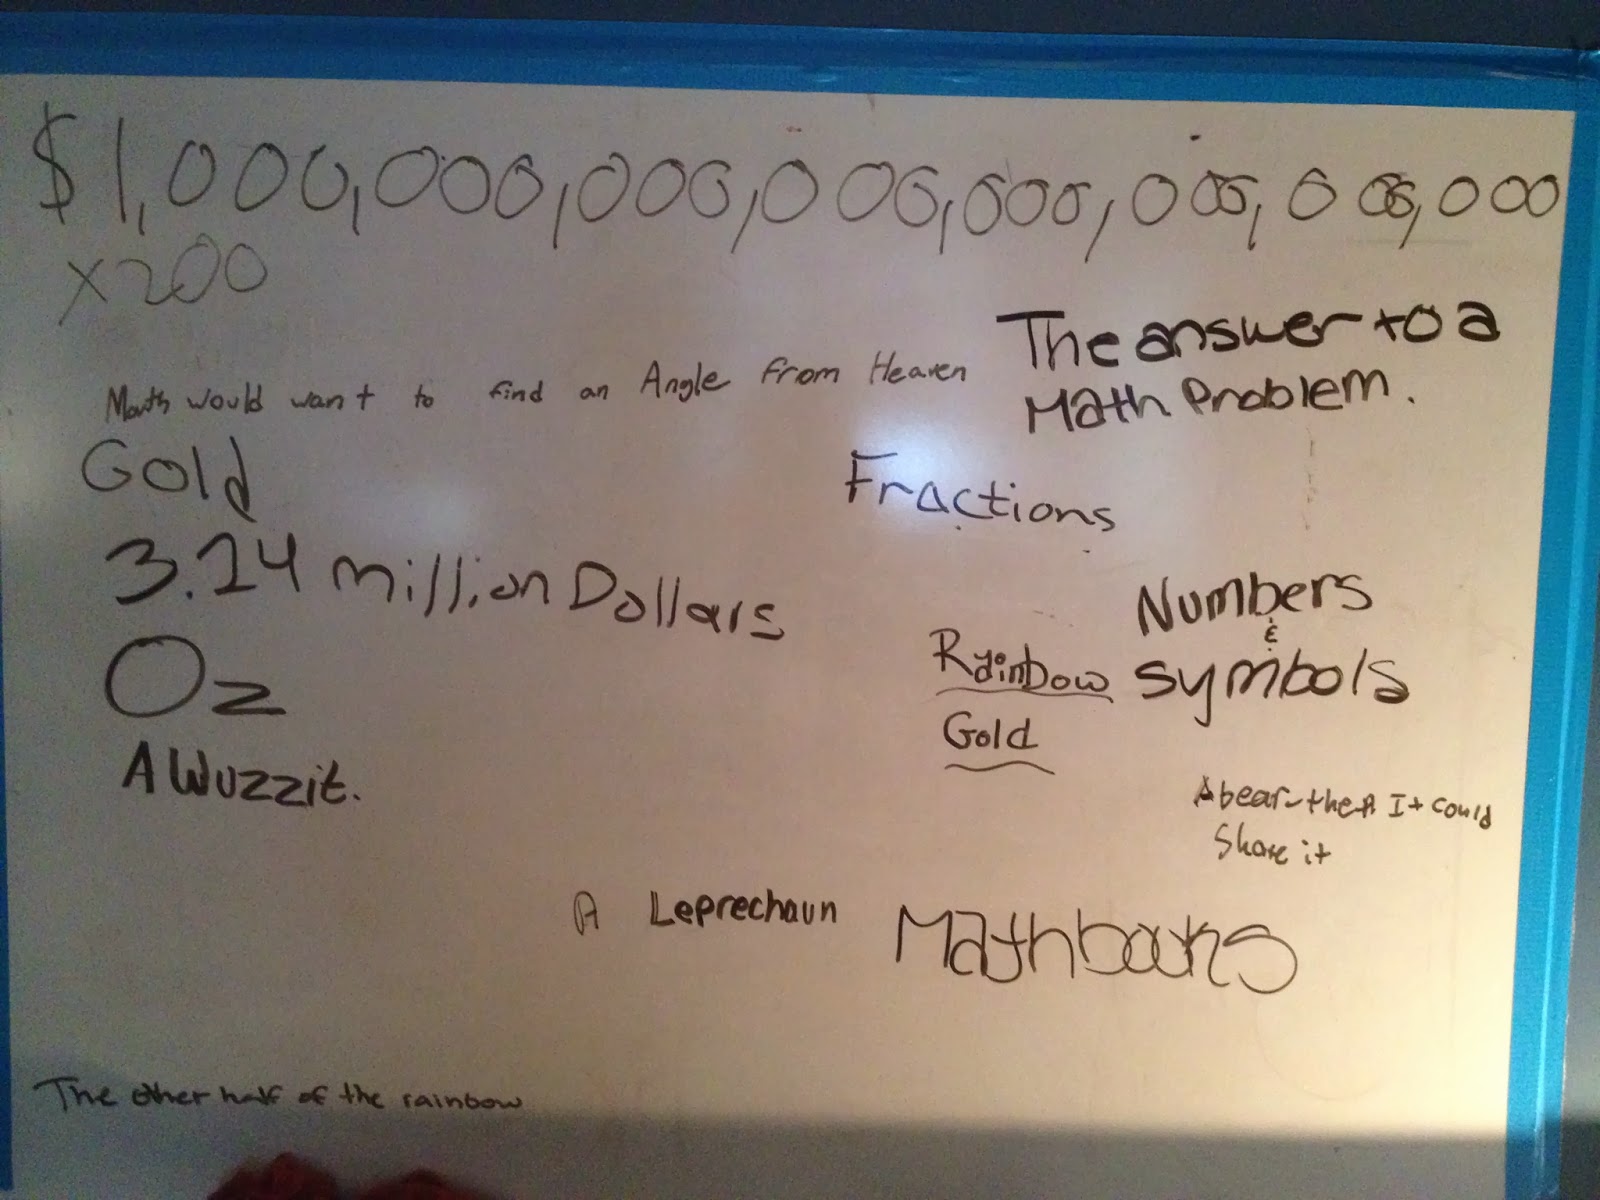 $1,000,000,000,000,000,000,000,000
x200
The answer to a
Math Problem.
Math would want to find an Angle from Heaven
Gold
Fractions
3.14 million Dollars
Numbers
&
symbols
Rainbow
Gold
Oz
A Wuzzit.
A bear-then It could
Share it
A Leprechaun
Mathbooks
The other half of the rainbow